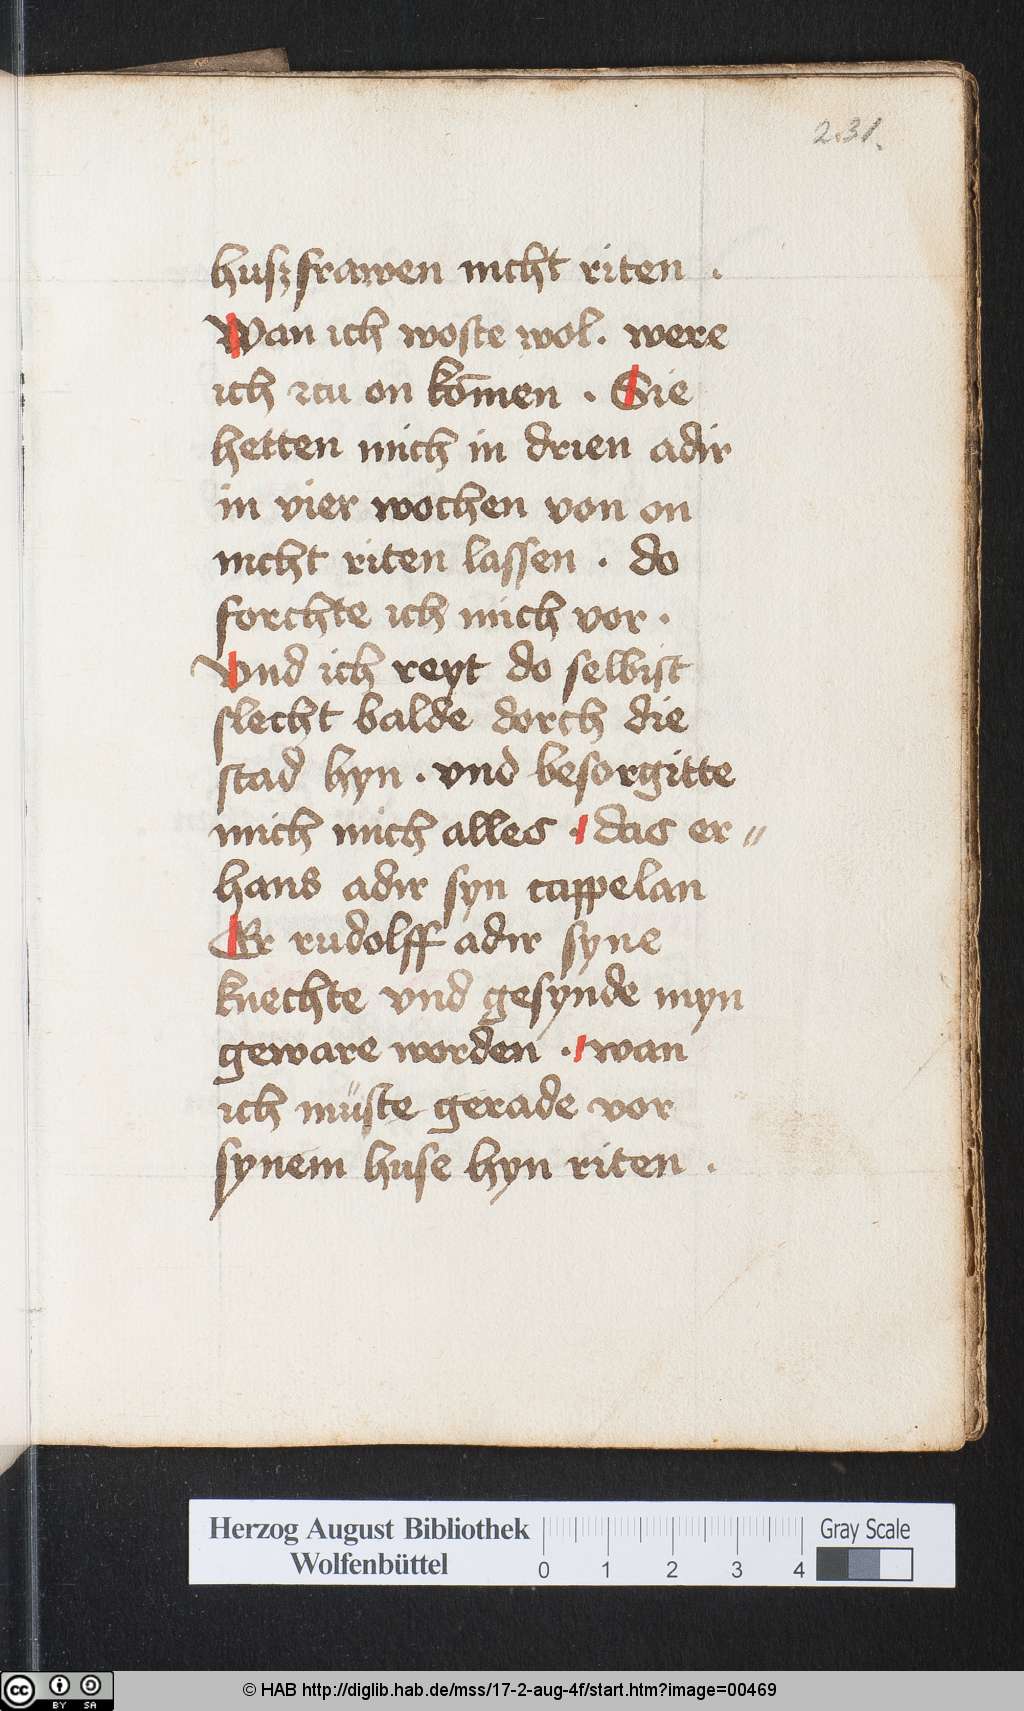 231.
huszfrawen nicht riten .
Wan ich woste wol . were
ich zcu on kōmen . Sie
hetten mich in drien adir
in vier wochen von on
nicht riten lassen . do
forchte ich mich vor .
vnd ich reyt do selbist
slecht balde dorch die
stad hyn . vnd besorgitte
mich mich alles . das er〃
hans adir syn cappelan
Er rudolff adir syne
knechte vnd gesynde myn
geware worden . wan
ich müste gerade vor
synem huse hyn riten .
Herzog August Bibliothek
Wolfenbüttel
0 1 2 3 4
Gray Scale
cc BY SA
© HAB http://diglib.hab.de/mss/17-2-aug-4f/start.htm?image=00469